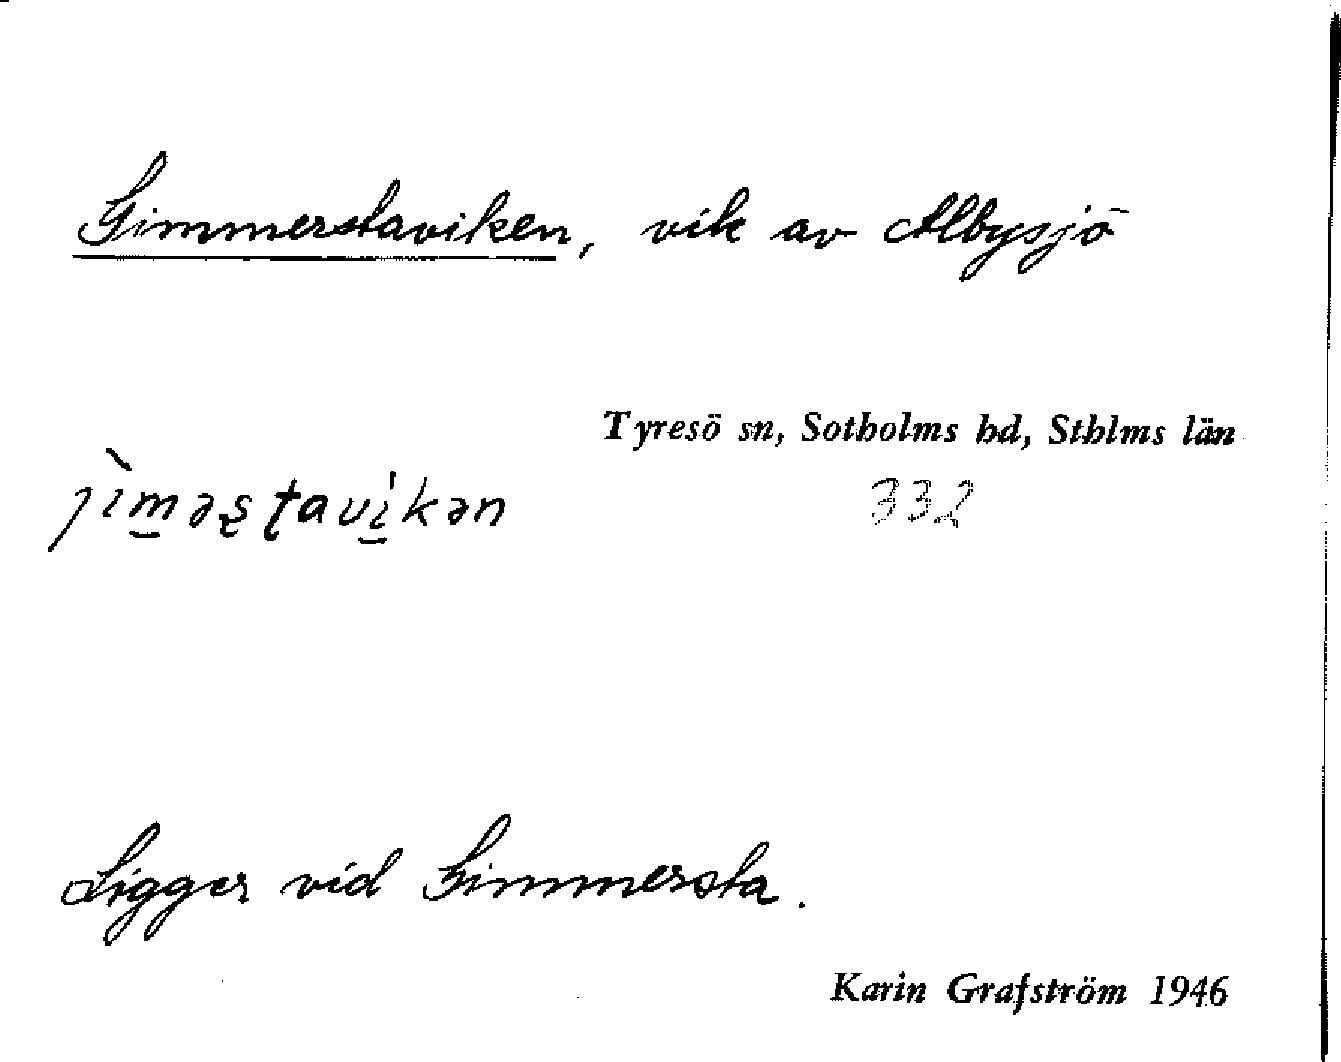 Gimmerstaviken, vik av Albysjö
Tyresö sn, Sotholms hd, Sthlms län
jìməʂʈavi̍kən 332
Ligger vid Gimmersta.
Karin Grafström 1946